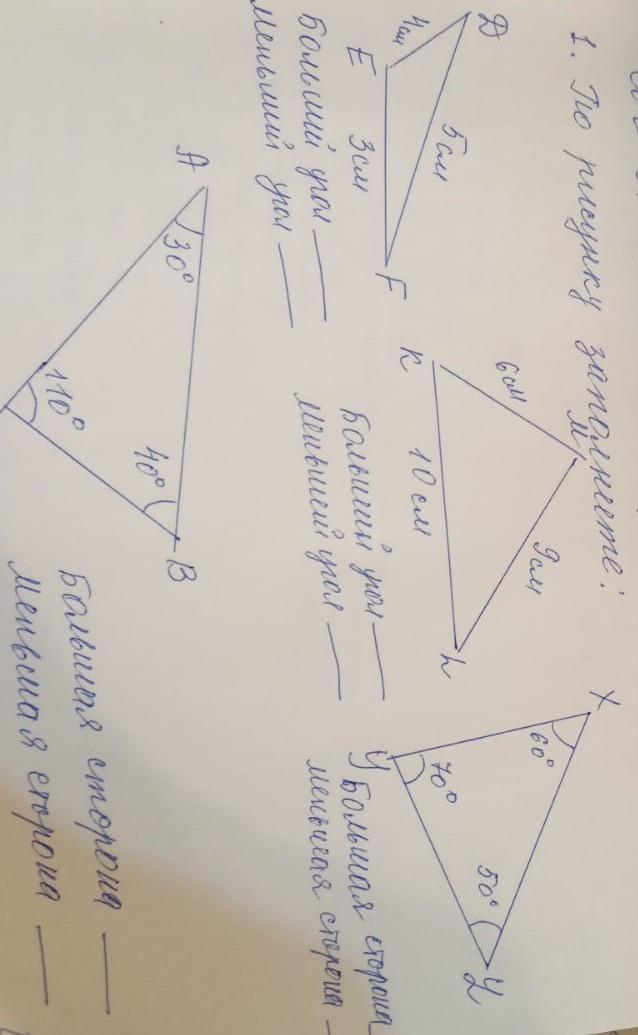 1. По рисунку заполнете:
D
4см
5см
E
3см
F
Больший угол
меньший угол
M
6см
9см
K
10см
L
Больший угол
меньший угол
X
60°
У
70°
50°
Большая сторона
меньшая сторона
A
30°
110°
40°
B
Большая сторона
меньшая сторона